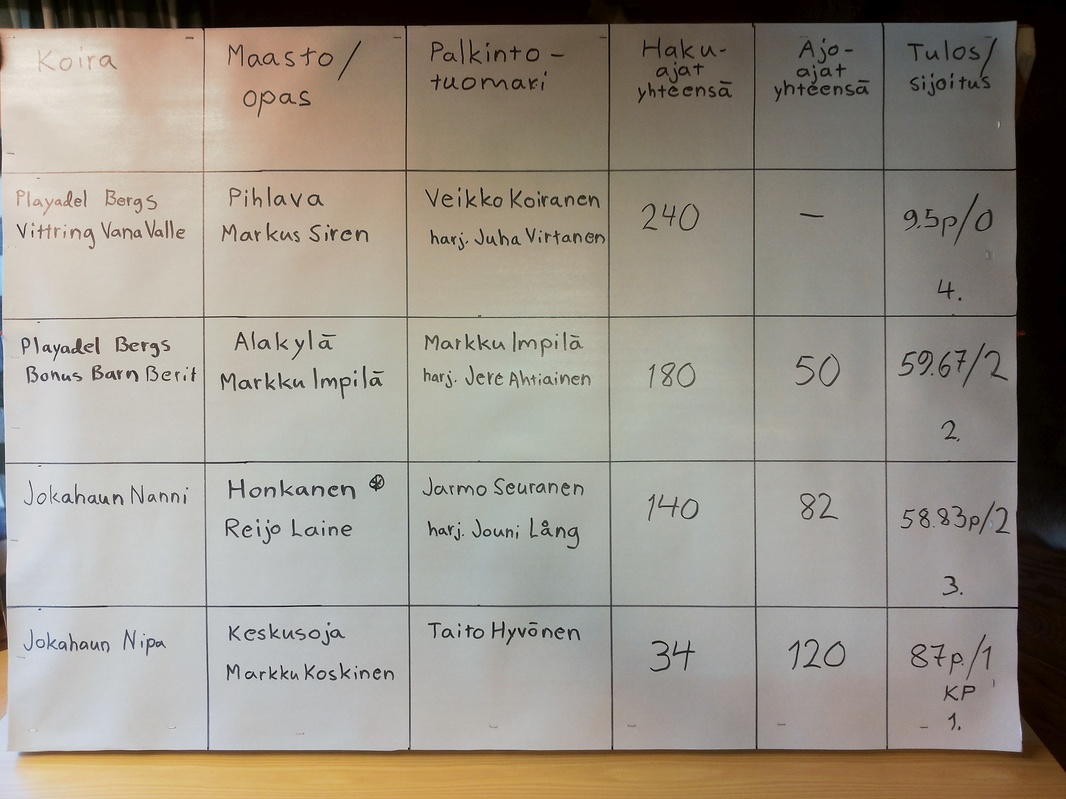 Koira
Maasto/
opas
Palkinto-
tuomari
Haku-
ajat
yhteensä
Ajo-
ajat
yhteensä
Tulos/
sijoitus
Playadel Bergs
Vittring Vana Valle
Pihlava
Markus Siren
Veikko Koiranen
harj. Juha Virtanen
240
—
9.5p/0
4.
Playadel Bergs
Bonus Barn Berit
Alakylä
Markku Impilä
Markku Impilä
harj. Jere Ahtiainen
180
50
59.67/2
2.
Jokahaun Nanni
Honkanen
Reijo Laine
Jarmo Seuranen
harj. Jouni Lång
140
82
58.83p/2
3.
Jokahaun Nipa
Keskusoja
Markku Koskinen
Taito Hyvönen
34
120
87p./1
KP
1.